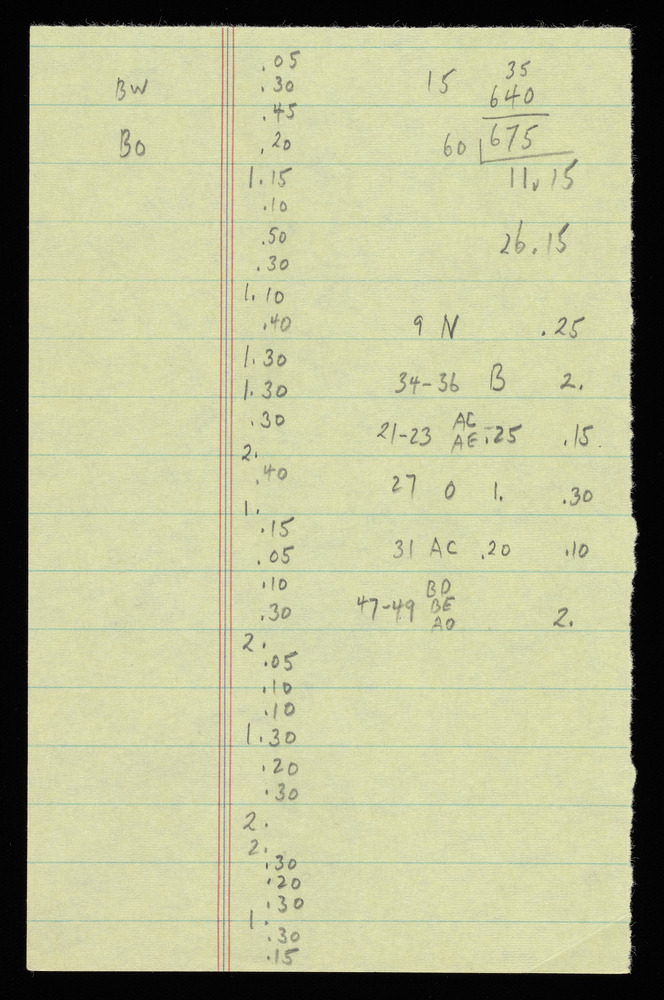 BW
Bo
.05
.30
.45
.20
1.15
.10
.50
.30
1.10
.40
1.30
1.30
.30
2.
.40
1.
.15
.05
.10
.30
2.
.05
.10
.10
1.30
.20
.30
2.
2.
.30
.20
.30
1.
.30
.15
15 35
640
60 675
11.15
26.15
9 N .25
34-36 B 2.
21-23 AC
AE .25 .15.
27 O 1. .30
31 AC .20 .10
BD
47-49 BE
AO 2.